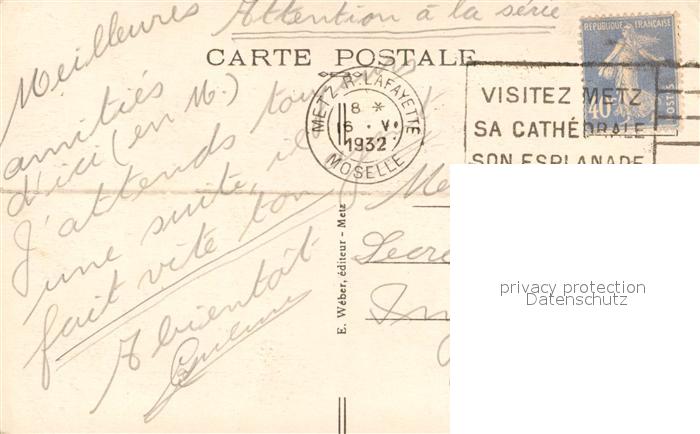 Attention à la série
CARTE POSTALE
RÉPUBLIQUE FRANÇAISE
40
POSTES
METZ R. LAFAYETTE
8 *
6 · V
1932
MOSELLE
VISITEZ METZ
SA CATHÉDRALE
SON ESPLANADE
Meilleures
amitiés
d'ici (en M.)
J'attends toujours
une suite, il
fait vite ton
A bientôt
Me
Secré
E. Wéber, éditeur - Metz
privacy protection
Datenschutz